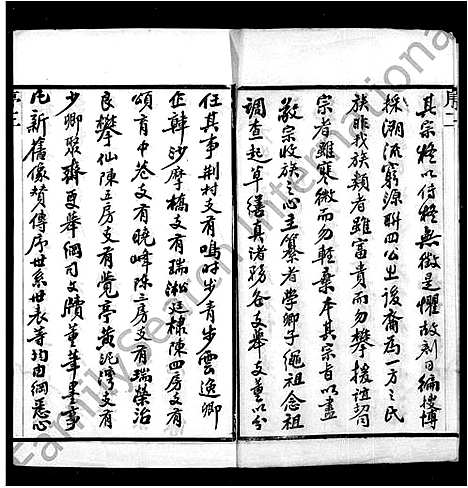 序二
其宗將以待將無徵是懼故刻日編搜博
採溯流窮源聯四公之後裔為一方之氏
族非我族類者雖富貴而勿攀援誼切
宗者雖寒微而勿輕棄本其宗旨以盡
敬宗收族之心主纂者榮卿子繩祖念祖
調查起草繕真諸務各支舉支董以分
任其事荆村支有鳴時步青步雲逸卿
企韓沙摩橋支有瑞淞廷棣陳四房支有
頌育中巷支有曉峰陳三房支有瑞榮治
良攀仙陳五房支有覺亭黃泥灣支有
少卿聚齋更舉綱司文牘董華墨事
凡新舊像贊傳序世系世表等均由綱悉心
序三
FamilySearch International